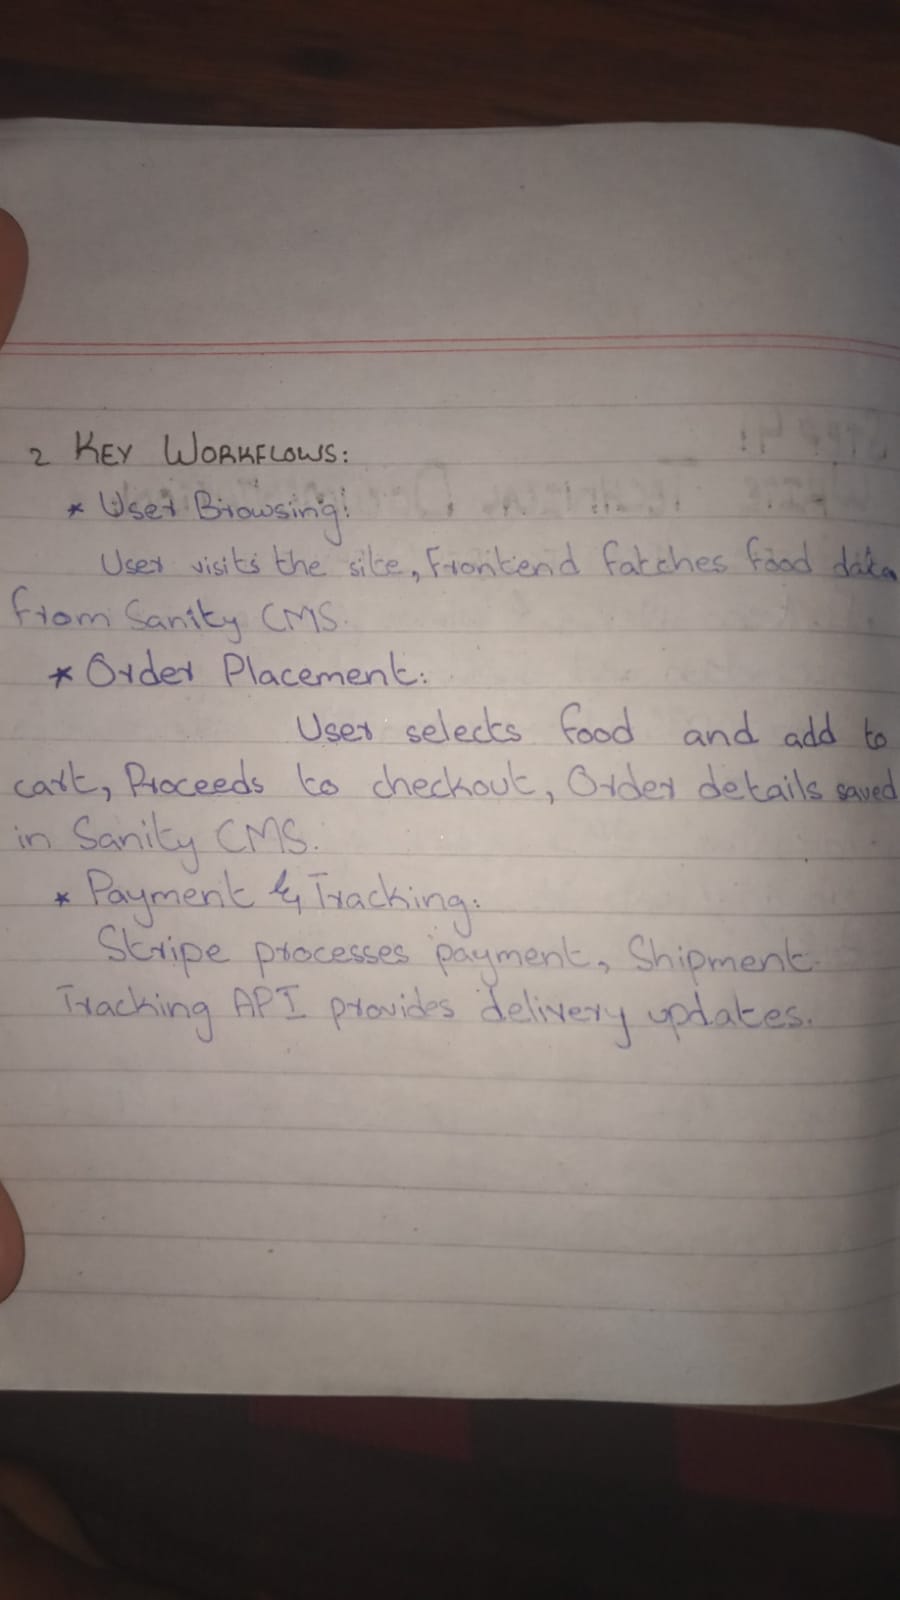 2 KEY WORKFLOWS:
* User Browsing:
User visits the site, Frontend fatches food data
from Sanity CMS.
* Order Placement:
User selects food and add to
cart, Proceeds to checkout, Order details saved
in Sanity CMS.
* Payment & Tracking:
Stripe processes payment, Shipment
Tracking API provides delivery updates.